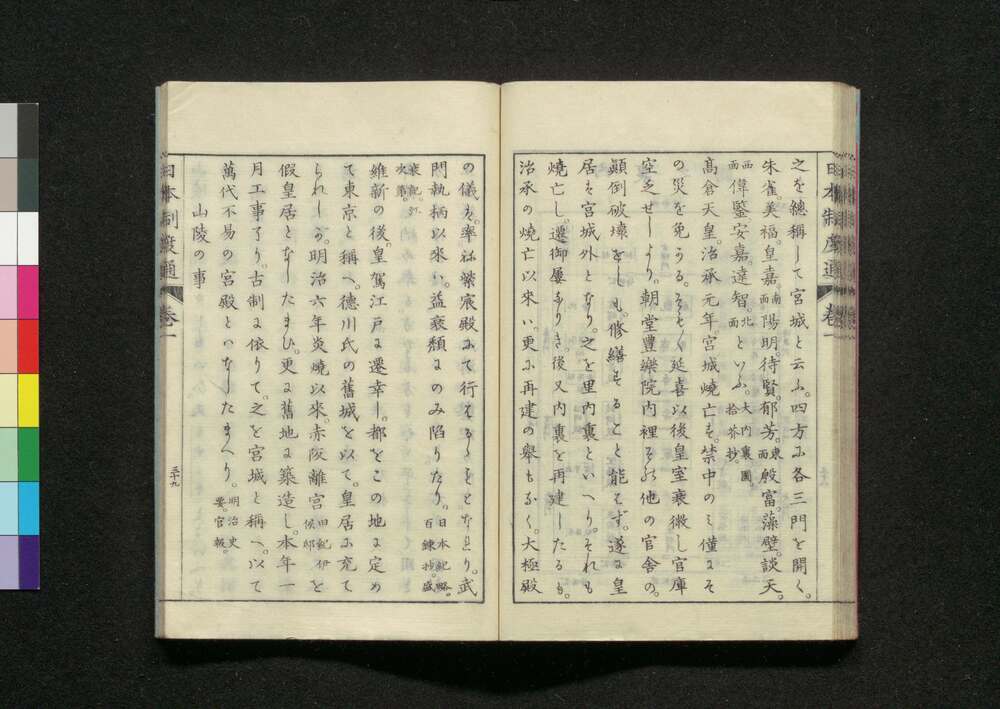 之を總稱して宮城と云ふ。四方に各三門を開く。
朱雀美福。皇嘉南面陽明。待賢。郁芳。東面殷富。藻壁。談天。
西面偉鑒。安嘉。達智。北面といふ。大内裏圖。拾芥抄。
高倉天皇。治承元年宮城燒亡す。禁中のみ僅にそ
の災を免かる。そも〳〵延喜以後皇室衰微し官庫
空乏せしより。朝堂豐樂院内裡その他の官舍の。
顛倒破壞をしも。修繕することを能はず。遂に皇
居は宮城外となり。之を里内裏といへり。それも
燒亡し。遷御屢なりき後又内裏を再建したるも。
治承の燒亡以來は。更に再建の擧もなく。大極殿
の儀は。率ね紫宸殿にて行はるゝことなれり。武
門執柄以來は。益衰頽にのみ陷りたり。日本紀略。百鍊抄。盛
衰記。次第。
維新の後。皇駕江戸に遷幸し。都をこの地に定め
て東京と稱へ。德川氏の舊城を以て。皇居に充て
られしが。明治六年炎燒以來。赤阪離宮田紀伊侯邸を
假皇居となしたまひ。更に舊地に築造し。本年一
月工事了り。古制に依りて。之を宮城と稱へ。以て
萬代不易の宮殿とはなしたまへり。明治史要。官報。
山陵の事
日本制度通
卷一
三十九
日本制度通
卷一